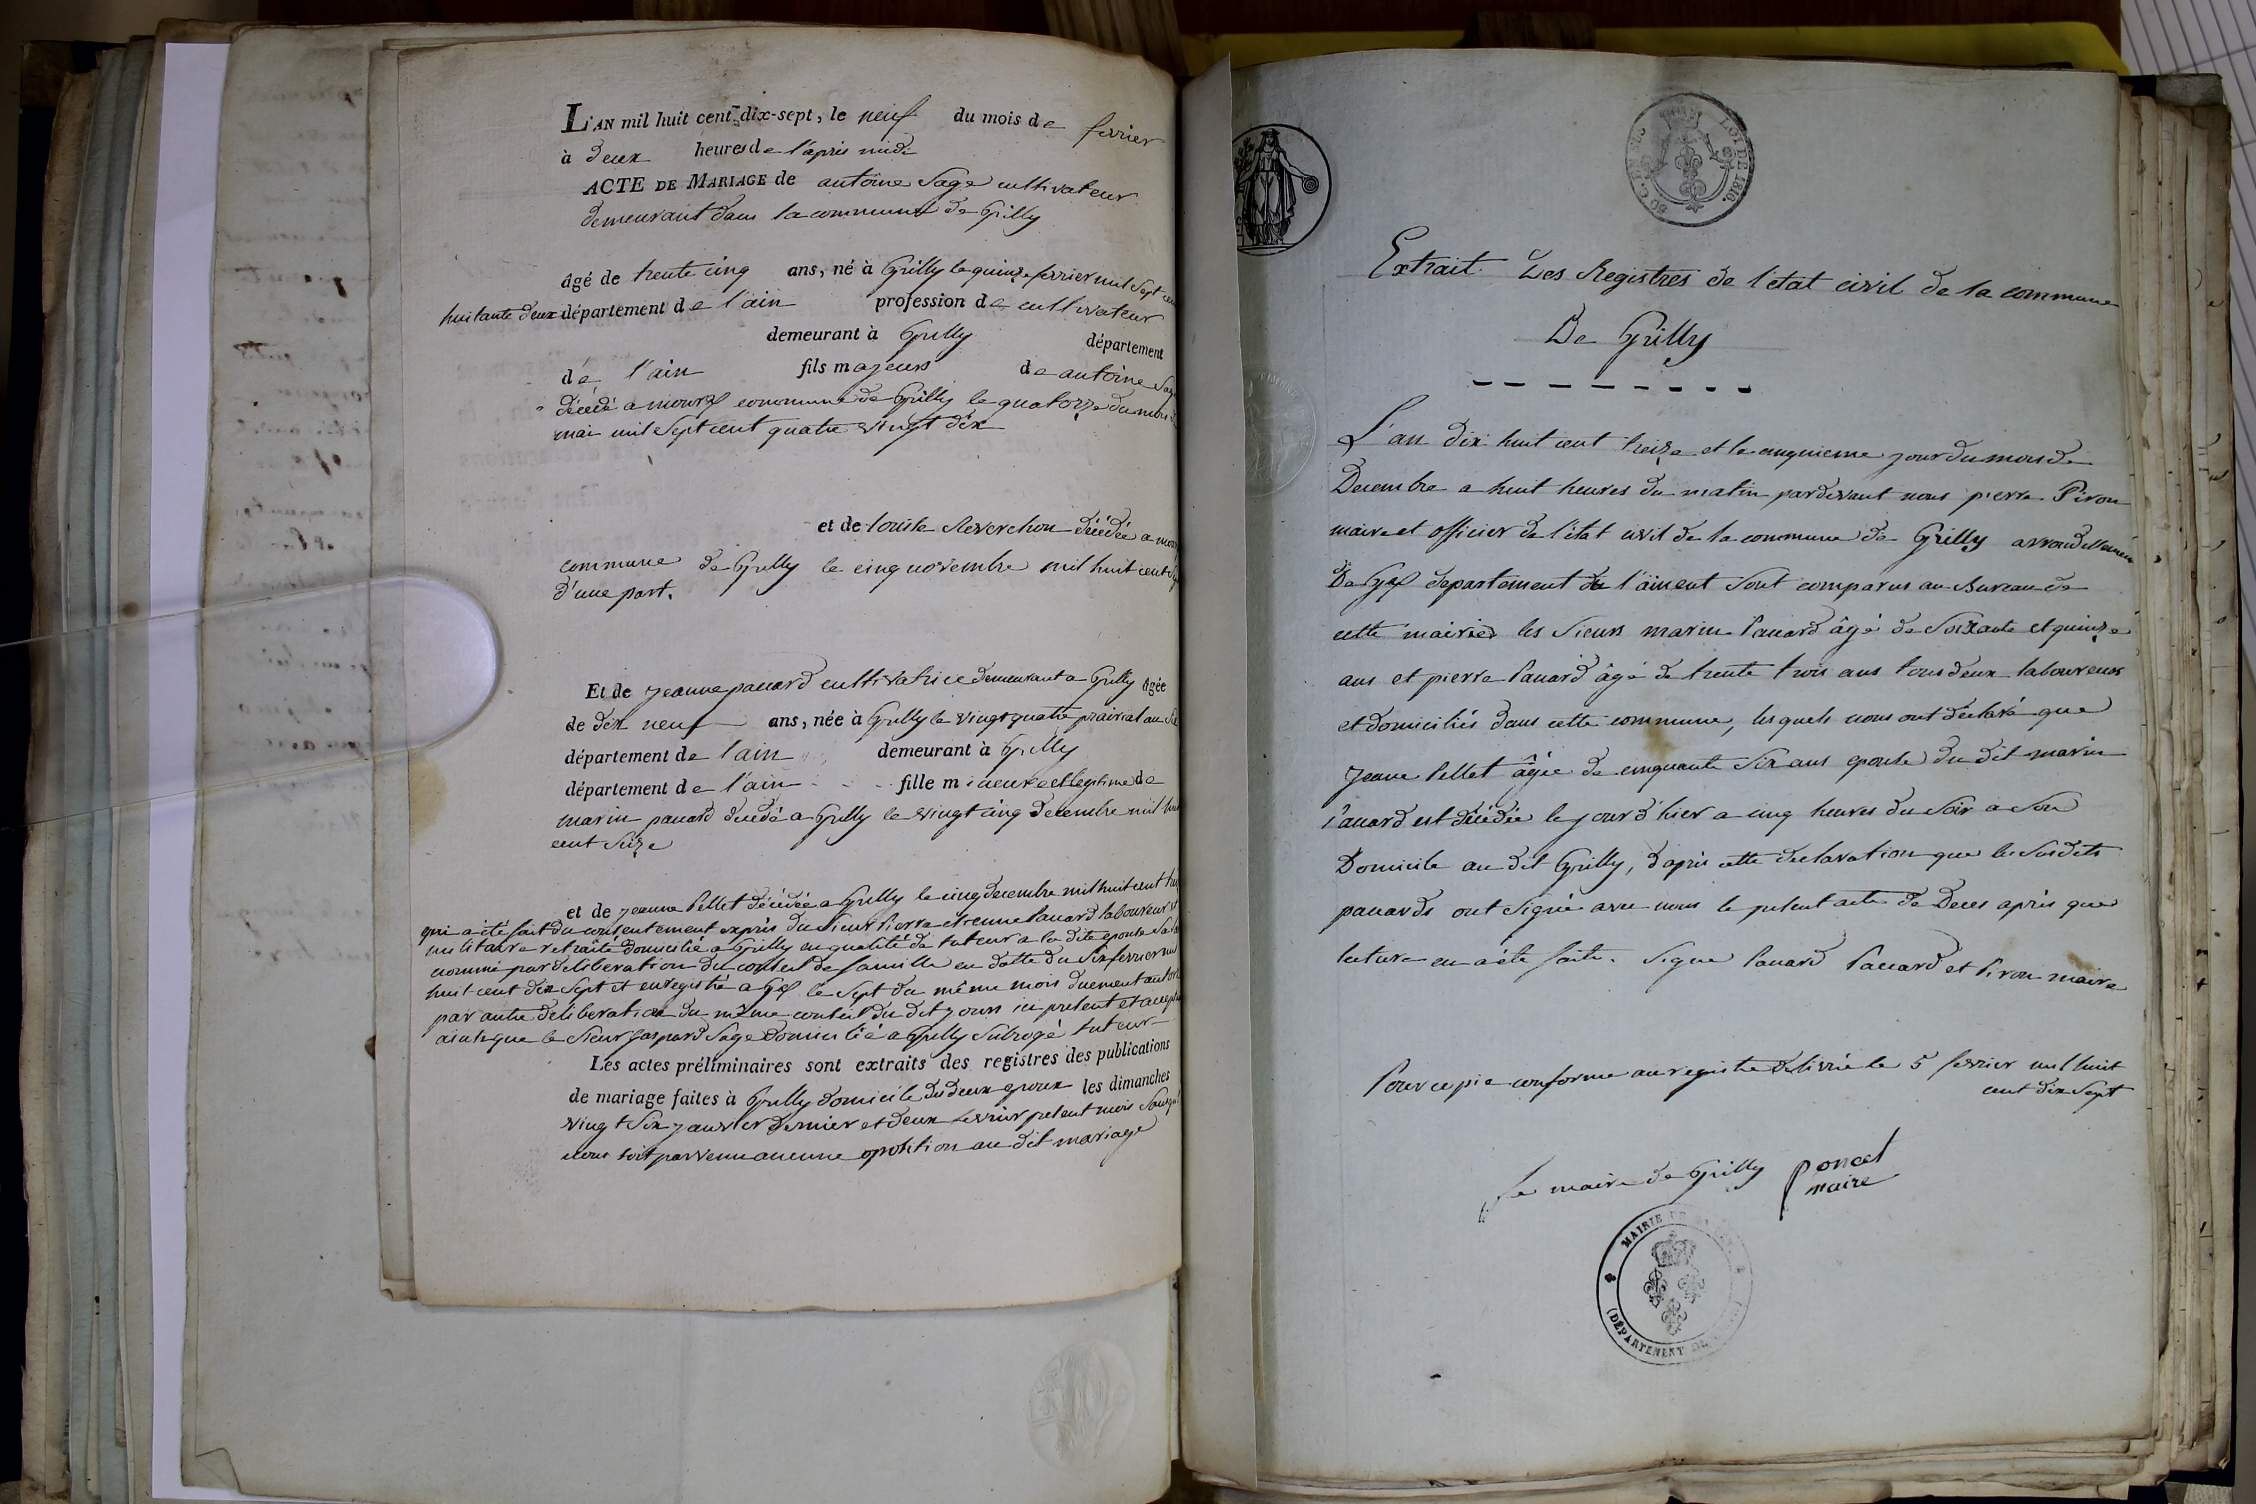 L'AN mil huit cent dix-sept, le neuf du mois de fevrier
à deux heures de l'après midi
ACTE DE MARIAGE de antoine Sage cultivateur
demeurant dans la commune de Grilly
âgé de trente cinq ans, né à Grilly le quinze fevrier mil sept cent
huitante deux département de l'ain profession de cultivateur
demeurant à Grilly département
de l'ain fils majeurs de antoine Sage
décédé a mourex commune de Grilly le quatorze du mois de
mai mil sept cent quatre vingt dix
et de louise Reverchon décédée a
commune de Grilly le cinq novembre mil huit cent
d'une part.
Et de jeanne panard cultivatrice demeurant a Grilly âgée
de dix neuf ans, née à Grilly le vingt quatre prairial an
département de l'ain demeurant à Grilly
département de l'ain fille mineure et legitime de
marin panard decédé a Grilly le vingt cinq decembre mil huit
cent seize
et de jeanne Pellet décédée a Grilly le cinq decembre mil huit cent
qui a été fait du consentement exprès du Sieur Pierre etienne Panard laboureur et
militaire retraité domicilié a Grilly en qualité de tuteur a la dite epouse
nommé par deliberation du conseil de famille en datte du six fevrier mil
huit cent dix sept et enregistré a Gex le sept du même mois duement
par autre deliberation du même conseil du dit jours ici present et
ainsi que le Sieur gaspard Sage domicilié a Grilly subrogé tuteur
Les actes préliminaires sont extraits des registres des publications
de mariage faites à Grilly domicile des deux epoux les dimanches
vingt six janvier dernier et deux fevrier present mois sans qu'il
nous soit parvenu aucune oposition au dit mariage
50 C.
LOI DE 1816.
Extrait Des Registres de l'état civil de la commune
De Grilly
L'an dix huit cent treize et le cinquieme jour du mois de
Decembre a huit heures du matin pardevant nous pierre Piron
maire et officier de l'état civil de la commune de Grilly arrondissement
De Gex departement de l'ain ent sont comparus au Bureau de
cette mairie les Sieurs marin Panard âgé de soixante et quinze
ans et pierre Panard âgé de trente trois ans tous deux laboureurs
et domiciliés dans cette commune, lesquels nous ont déclaré que
jeane Pellet âgée de cinquante six ans epouse du dit marin
Panard est décédée le jour d'hier a cinq heures du soir a son
Domicile au dit Grilly, d'après cette declaration que les susdits
panards ont signé avec nous le present acte de Deces après que
lecture en a été faite. Signé Panard Panard et Piron maire
Pour copie conforme au registre délivré le 5 fevrier mil huit
cent dix sept
Le maire de Grilly Poncet
maire
MAIRIE DE
(DÉPARTEMENT DE